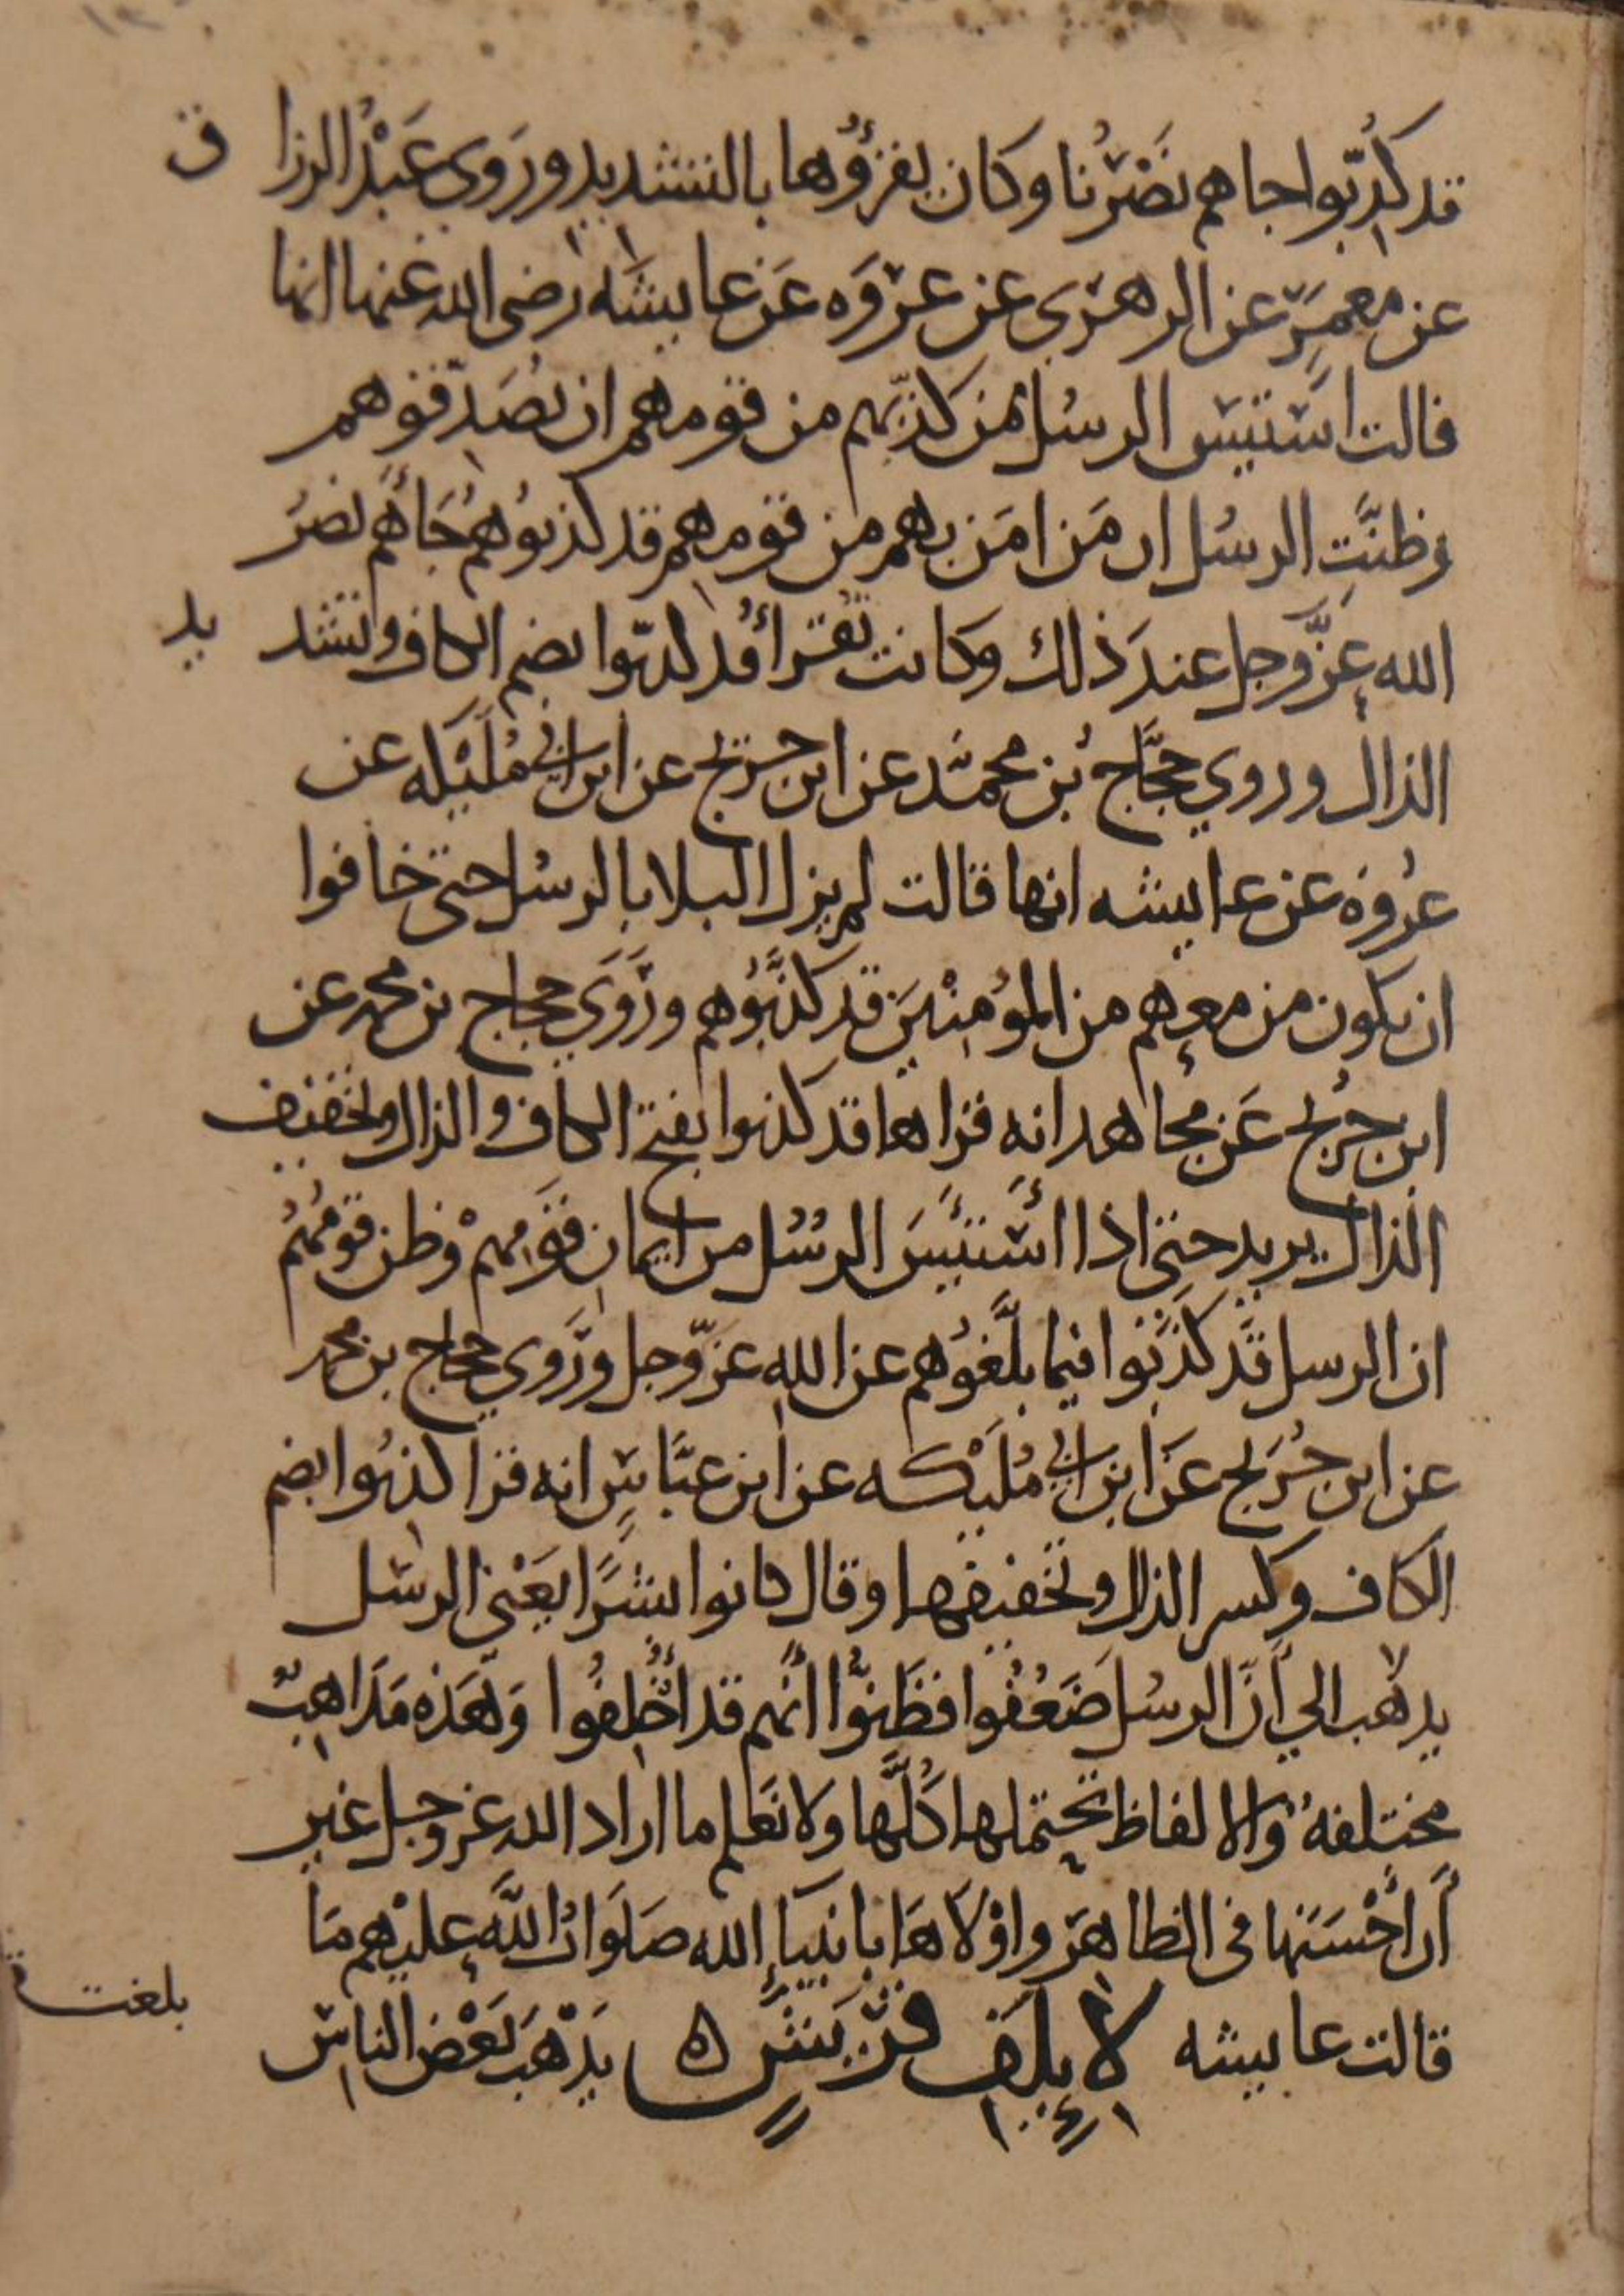 قد كُذِّبوا جاهم نَصْرُنا وكان يقرؤُها بالتشديد ورَوى عَبْدُ الرزاق
عن معمَرٍ عن الزهري عن عروَه عَن عايشَه رضى الله عنها انها
قالت استيئس الرسُل ممن كذبهم من قومهم ان يُصَدِّقوهم
وظنَّتِ الرسُل ان مَن امَن بهم من قومهم قد كذبوُهُم جَاءهُم نصرُ
الله عزَّ وجل عند ذلك وكانت تُقرأ قد كُذبّوا بضم الكاف وتشديد
الذال وروي حجَّاج بُن محمَّد عن ابن جريج عن ابن ابي مُلَيْكَه عن
عُروَه عن عايشه انها قالت لم يزل البلا بالرسُل حتى خافوا
ان يكون من معهم من المؤمِنْينَ قد كذَّبُوهم ورَوَي حجاج بن محمد عن
ابن جريج عَن مجاهد انه قراها قد كذبوا بفتح الكاف والذال وتخفيف
الذال يريد حتى اذا استَيئَسَ الرسُل من ايمان قَومهمْ وظن قومُهُم
ان الرسل قَد كذَبُوا فيما بلَّغوُهم عن الله عزّ وجل ورَوي حجاج بن محمد
عن ابن جُرَيج عَن ابن ابي مُلَيْكه عن ابن عبَّاسٍ انه قرا كذبُوا بضم
الكاف وكسر الذال وتخفيفها وقال كانوا بشرًا يَعْني الرسُل
يذهب الي أنَّ الرسُل ضَعُفُوا فظَنُّوا أنَّهم قد أُخلِفُوا وَهَذه مَذاهِبُ
مختلفهٌ والالفاظ تحتملها كُلَّها ولا نَعلم ما اراد الله عز وجل غير
أن أحْسَنَها فى الظاهر واوْلاهَا بانبياءِ الله صلَوَاتُ اللَّهِ عليْهم مَا
قالت عايشه لإِيلَفِ قُرَيشٍ ه يَذْهَبُ بَعْضُ الناسِ
بلغت